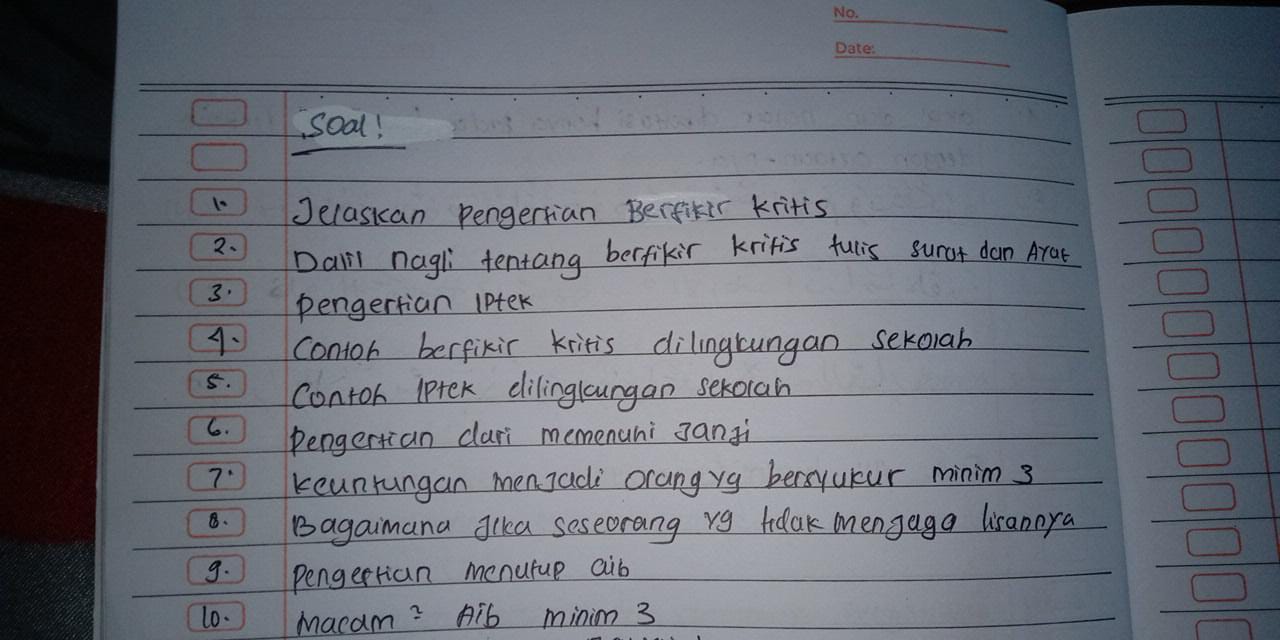 No.
Date:
Soal!
1. Jelaskan pengertian Berfikir kritis
2. Dalil nagli tentang berfikir kritis tulis surat dan Ayat
3. pengertian IPtek
4. Contoh berfikir kritis dilingkungan sekolah
5. Contoh IPtek dilingkungan sekolah
6. pengertian dari memenuhi Janji
7. keuntungan menjadi orang yg bersyukur minim 3
8. Bagaimana jika seseorang yg tidak menjaga lisannya
9. pengertian menutup aib
10. Macam ² Aib minim 3